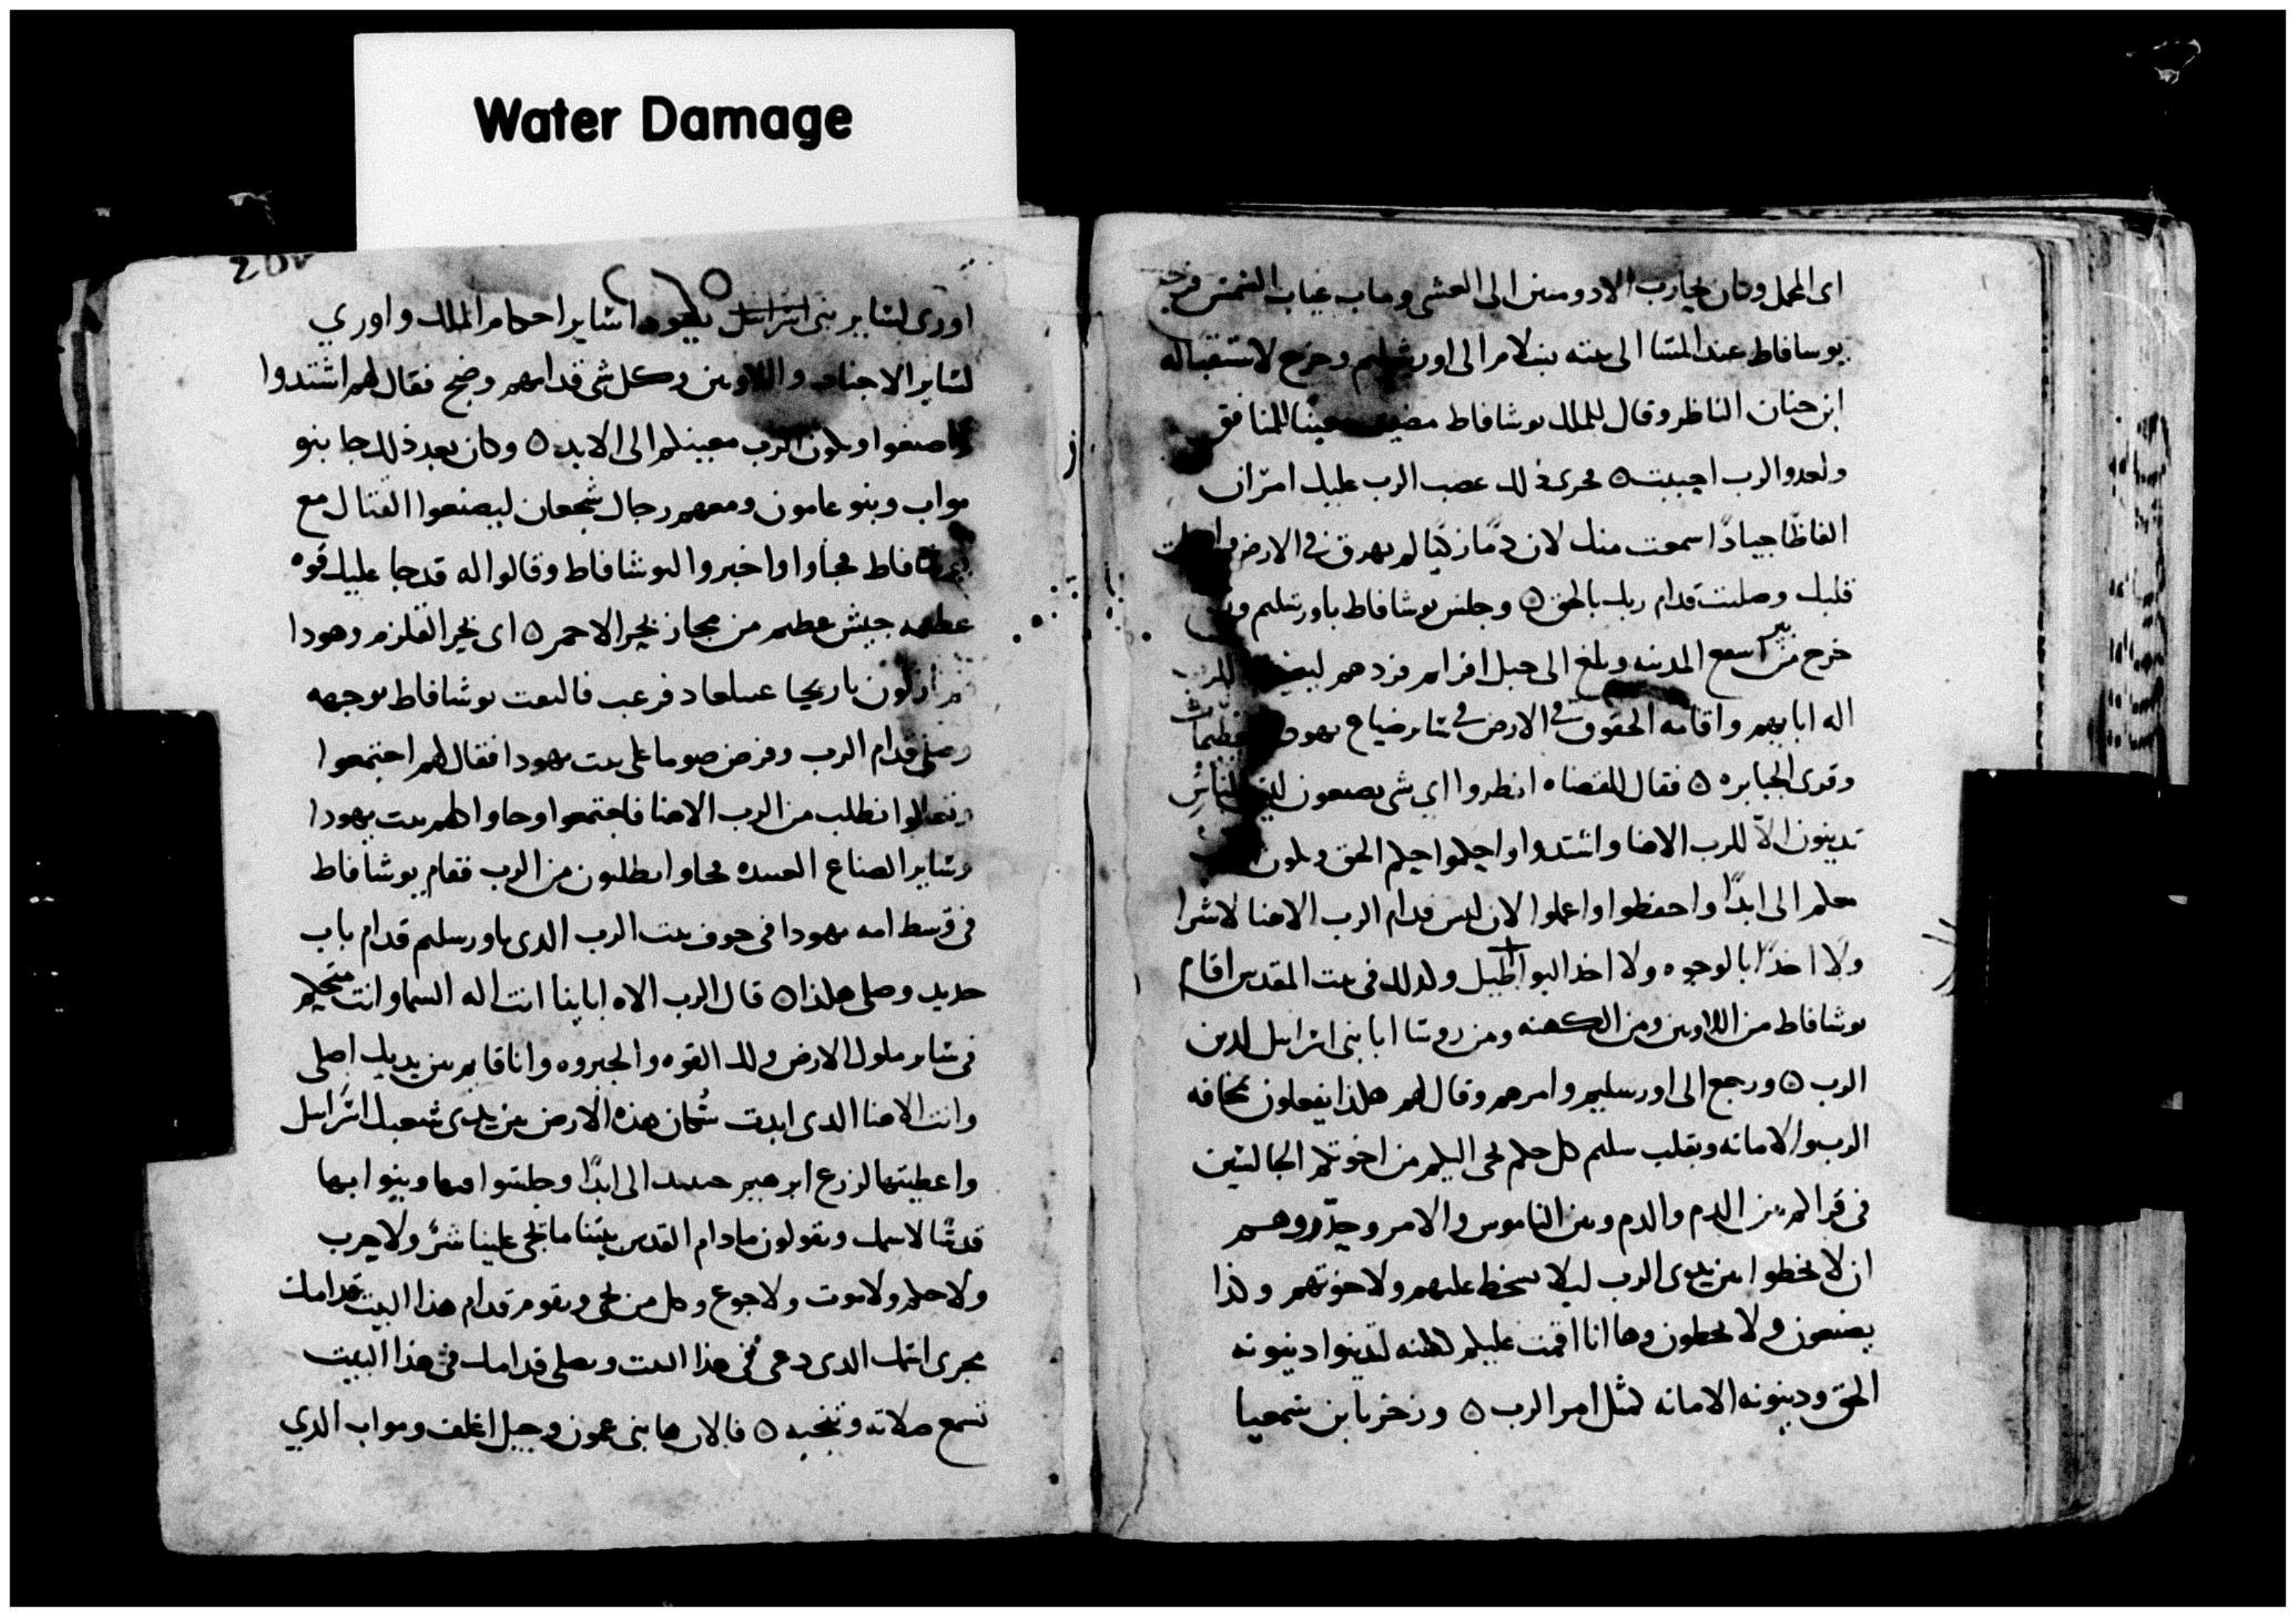 Water Damage
اى المحمل وكان يحارب الادومىىن الى العشى ومات غياب الشمس فرجع
يوسافاط عند المسا الى بيته بسلام الى اورشليم وخرج لاستقباله
ابن حنان الناظر وقال للملك يوشافاط معينًا للمنافق
ولعدو الرب احببت ٥ مجرى ذلك غضب الرب عليك امّر ان
الفاظًا جيادًا سمعت منك لان دمًا زكيًا لم يهرق في الارض
قلبك وصليت قدام ربك بالحق ٥ وجلس يوشافاط باورشليم
خرج من بير اسبع المدينه وبلغ الى جبل افرام فردهم للرب
اله اباييهم واقامه الحقوق في الارض في ساير ضياع يهودا
وقوى الجبابره ٥ فقال للقضاه انظروا اي شى يصنعون للناس
تدينون الاّ للرب الاهنا واشتدوا واحكموا حكم الحق ويكون
معكم الى ابدًا واحفظوا واعملوا لان ليس قدام الرب الاهنا لا شرا
ولا اخدًا بالوجوه ولا اخد البواطيل ولدلك فى بيت المقدس اقام
يوشافاط من اللاويين ومن الكهنه ومن روسا ابا بنى اسراييل لدين
الرب ٥ ورجع الى اورسليم وامرهم وقال لهم هكذا يفعلون بمخافه
الرب والامانه وبقلب سليم كل حكم يجى اليكم من اخوتكم الجالسين
فى قراكم بين الدم والدم وبين الناموس والامر وحدّروهم
ان لا يخطوا بين يدى الرب ليلا يسخط عليهم ولاخوتهم وكذا
يصنعون ولا يخطون وها انا اقمت عليكم كهنه لتدينوا دينونه
الحق ودينونه الامانه كمثل امر الرب ٥ وزخريا بن شمعيا
اورى لساير بنى اسراييل يهودا لساير احكام الملك واوري
لساير الاجناد واللاويين وكل شى قدامهم وضج فقال لهم اشتدوا
واصنعوا ويكون الرب معينكم الى الابد ٥ وكان بعد ذلك جا بنو
مواب وبنو عامون ومعهم رجال شجعان ليصنعوا القتال مع
يوشافاط فجاوا واخبروا ليوشافاط وقالوا له قد جا عليك قوه
عظيمه جيش عظيم من مجاز بحر الاحمر ٥ اى بحر القلزم وهودا
نازلون باريحا عىىلعاد فرعب فالتفت يوشافاط بوجهه
وصلى قدام الرب وفرض صوما على بيت يهودا فقال لهم اجتمعوا
وتعالوا نطلب من الرب الاهنا فاجتمعوا وجاوا كلهم بيت يهودا
وساير الصناع العبيده فجاوا يطلبون من الرب فقام يوشافاط
فى وسط امه يهودا فى جوف بيت الرب الدى باورسليم قدام باب
حديد وصلى هكذا ٥ قال الرب الاه اباينا انت اله السما وانت متحكم
فى ساير ملوك الارض ولك القوه والجبروه وانا قايم بين يديك اصلى
وانت الاهنا الدى ابدت سُكان هذه الارض بين يدى شعبك اسراييل
واعطيتها لزرع ابرهيم حبيبك الى ابدًا وجلسوا فيها وبنوا بها
قدسًا لاسمك ويقولون مادام القدس بيننا ما يجى علينا شر ولا حرب
ولا حكم ولا موت ولا جوع وكل من يجى ويقوم قدام هذا البيت قدامك
مجرى اسمك الدى دعى فى هذا البيت ويصلى قدامك فى هذا البيت
تسمع صلاته وتنجيه ٥ فالان ها بنى عمون وجبل اغلف ومواب الدي